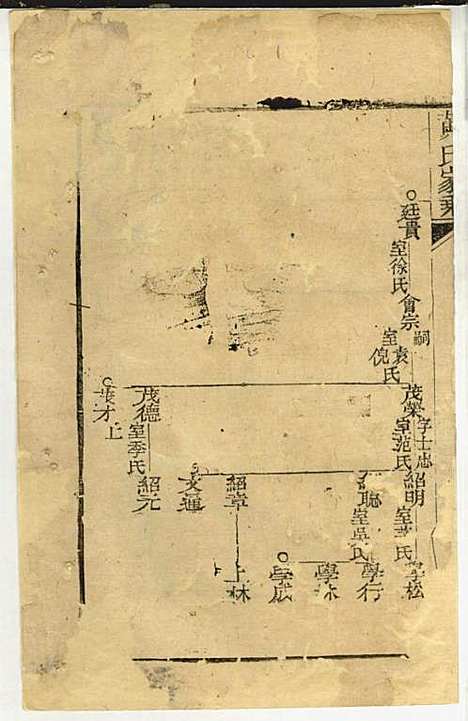 氏家乘
廷貴
室徐氏
會宗
嗣
室袁氏
倪
茂榮
字士忠
室范氏
紹明
室 氏
學松
聰
室吳氏
學行
學
學成
紹章
上林
文運
茂德
室季氏
紹元
茂才
上